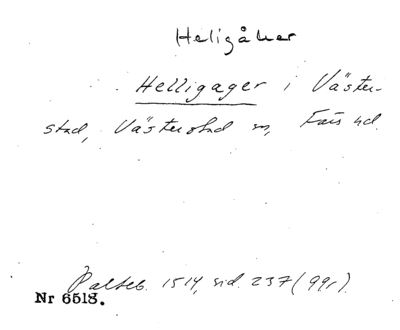 Heligåker
Helligager i Väster-
stad, Västerstad sn, Färs hd.
Palteb. 1514, sid. 237 (99r).
Nr 6518.